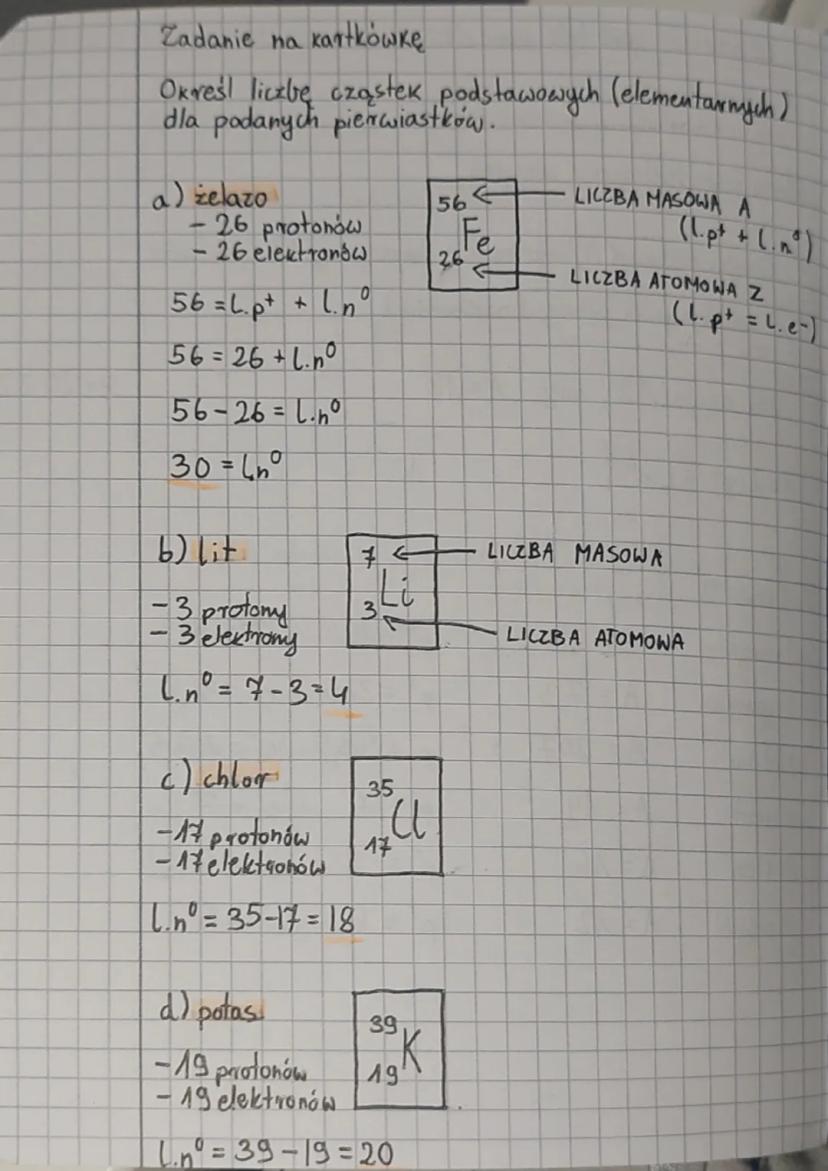 Zadanie na kartkówkę
Określ liczbę cząstek podstawowych (elementarnych)
dla podanych pierwiastków.
a) żelazo
- 26 protonów
- 26 elektronów
56 Fe 26
LICZBA MASOWA A
(l.p⁺ + l.n⁰)
LICZBA ATOMOWA Z
(l.p⁺ = l.e⁻)
56 = l.p⁺ + l.n⁰
56 = 26 + l.n⁰
56 - 26 = l.n⁰
30 = l.n⁰
b) lit
- 3 protony
- 3 elektrony
7 Li 3
LICZBA MASOWA
LICZBA ATOMOWA
l.n⁰ = 7 - 3 = 4
c) chlor
- 17 protonów
- 17 elektronów
35 Cl 17
l.n⁰ = 35 - 17 = 18
d) potas
- 19 protonów
- 19 elektronów
39 K 19
l.n⁰ = 39 - 19 = 20